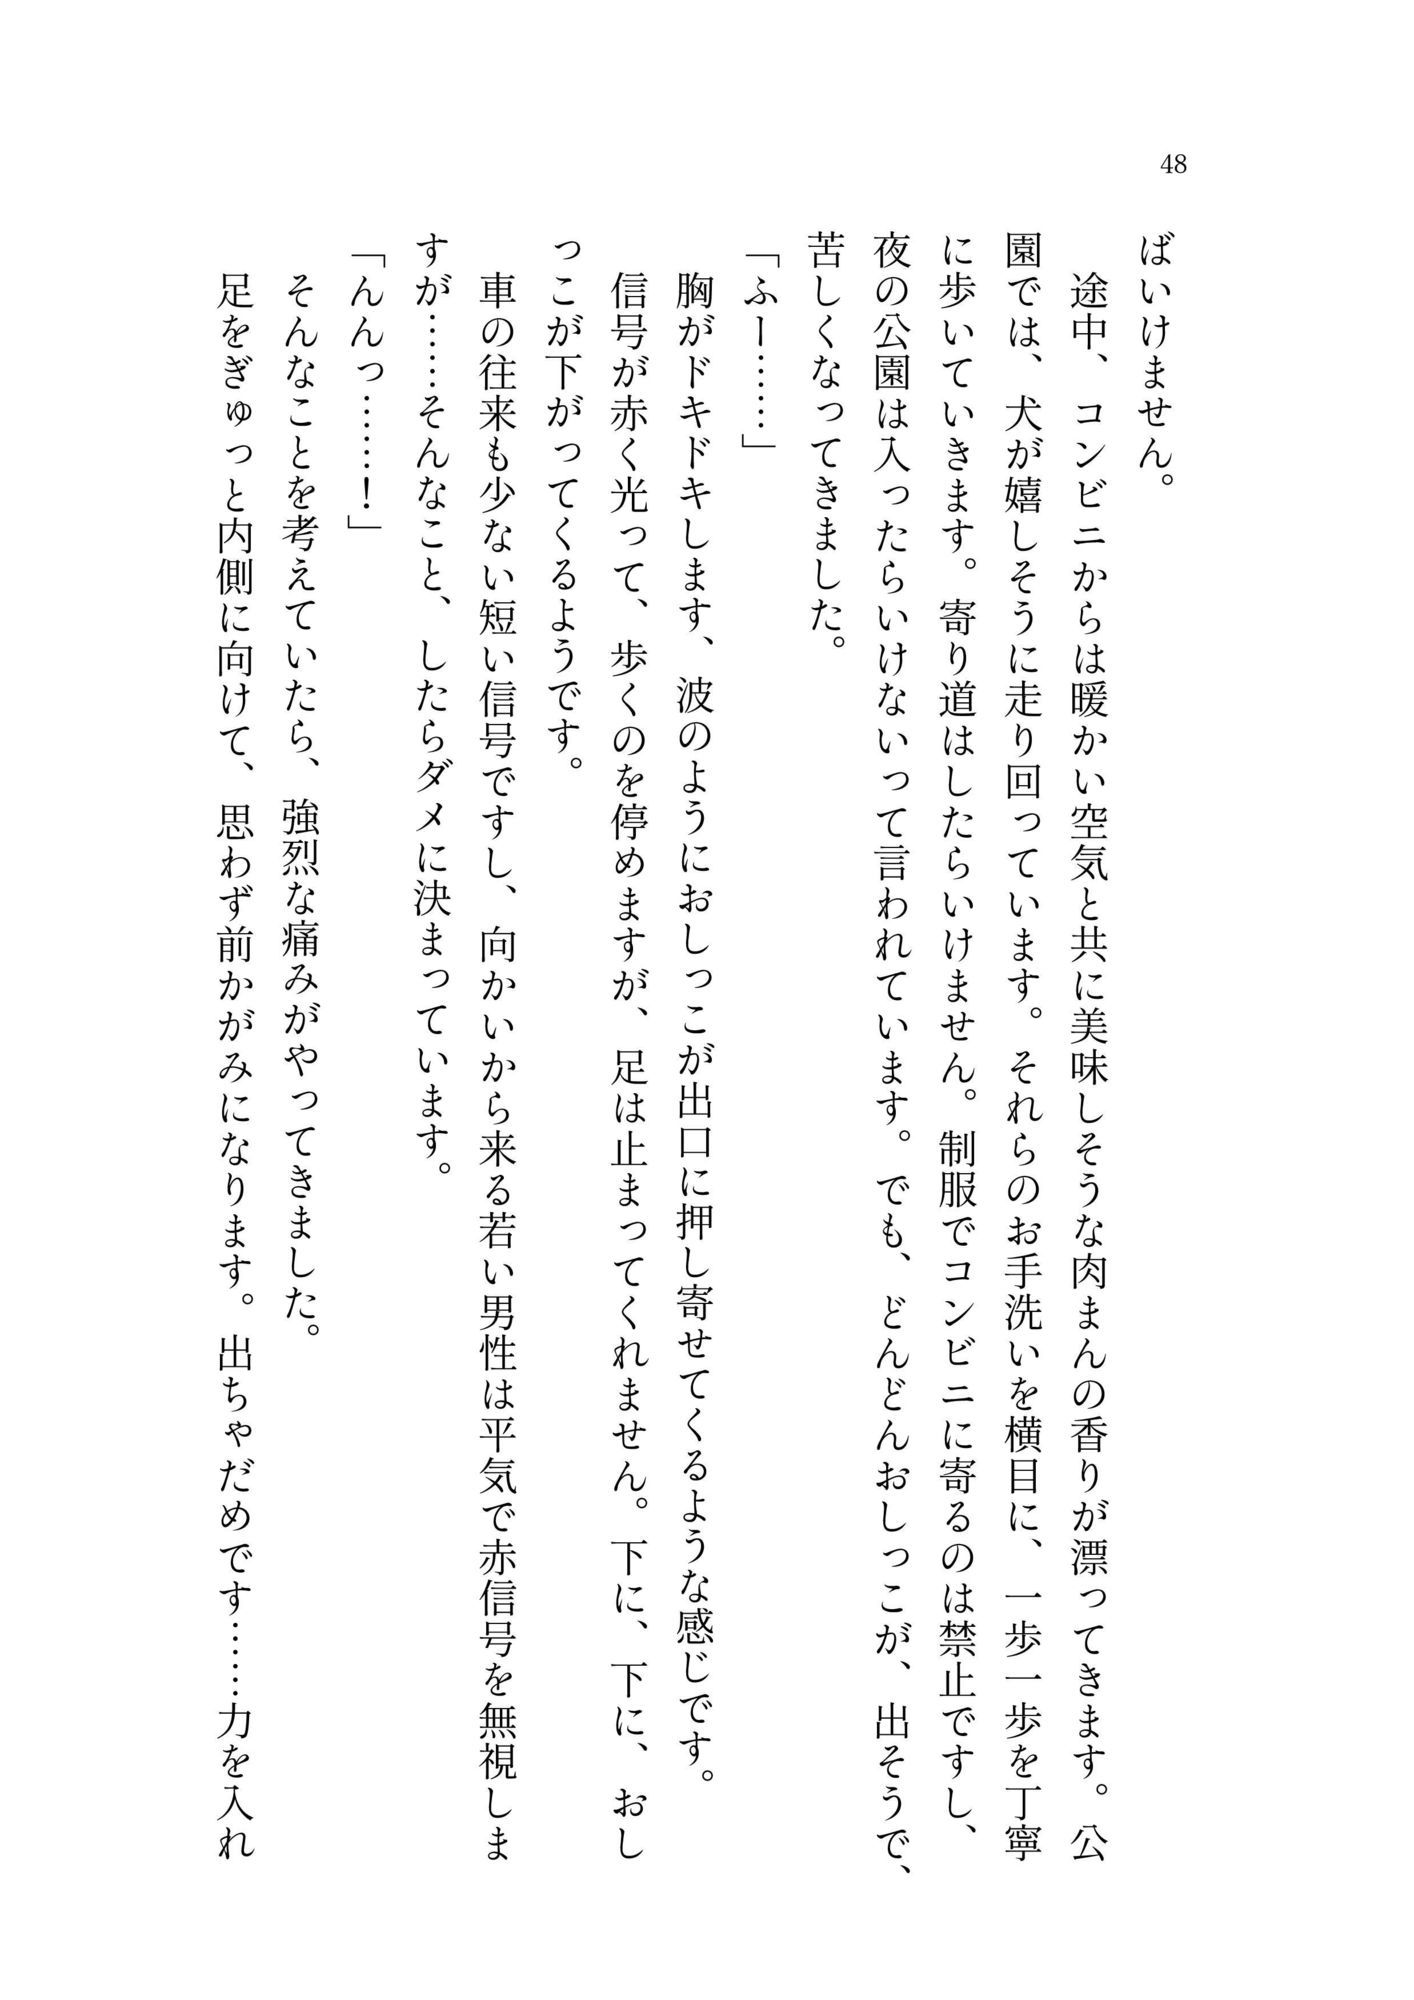 48
ばいけません。
途中、コンビニからは暖かい空気と共に美味しそうな肉まんの香りが漂ってきます。公
園では、犬が嬉しそうに走り回っています。それらのお手洗いを横目に、一歩一歩を丁寧
に歩いていきます。寄り道はしたらいけません。制服でコンビニに寄るのは禁止ですし、
夜の公園は入ったらいけないって言われています。でも、どんどんおしっこが、出そうで、
苦しくなってきました。
「ふー……」
胸がドキドキします、波のようにおしっこが出口に押し寄せてくるような感じです。
信号が赤く光って、歩くのを停めますが、足は止まってくれません。下に、下に、おし
っこが下がってくるようです。
車の往来も少ない短い信号ですし、向かいから来る若い男性は平気で赤信号を無視しま
すが……そんなこと、したらダメに決まっています。
「んんっ……！」
そんなことを考えていたら、強烈な痛みがやってきました。
足をぎゅっと内側に向けて、思わず前かがみになります。出ちゃだめです……力を入れ